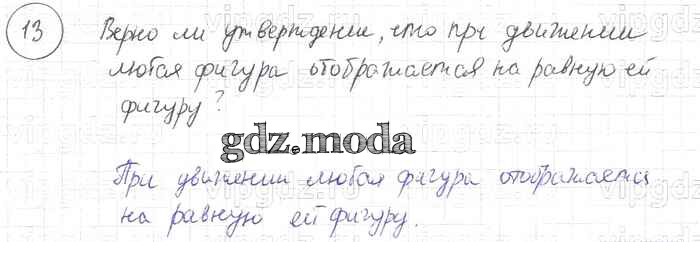 13 Верно ли утверждении, что при движении
любая фигура отображается на равную ей
фигуру?
gdz.moda
При движении любая фигура отображается
на равную ей фигуру.